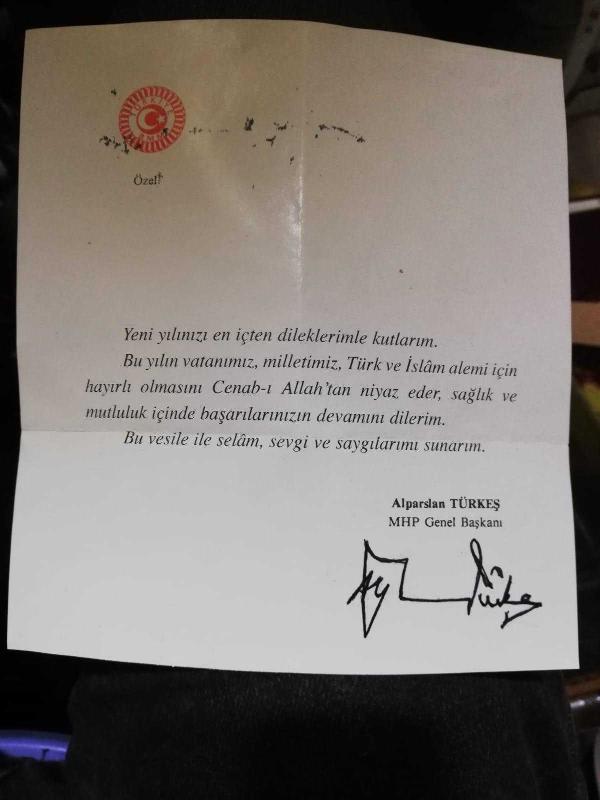 TÜRKİYE
Özel
Yeni yılınızı en içten dileklerimle kutlarım.
Bu yılın vatanımız, milletimiz, Türk ve İslâm alemi için
hayırlı olmasını Cenab-ı Allah'tan niyaz eder, sağlık ve
mutluluk içinde başarılarınızın devamını dilerim.
Bu vesile ile selâm, sevgi ve saygılarımı sunarım.
Alparslan TÜRKEŞ
MHP Genel Başkanı